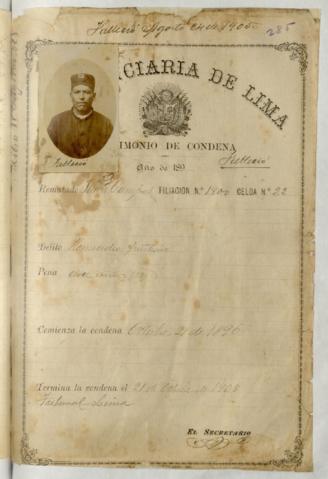 Falleció Agosto 24 de 1900
285
CIARIA DE LIMA
IMONIO DE CONDENA
Falleció
Año de 189
Falleció
Rematado FILIACION N.º 1800 CELDA N.º 22
Delito Homicidio
Pena
Comienza la condena Octubre 21 de 1896
Termina la condena el 21 de Octubre de
Tribunal Lima
EL SECRETARIO